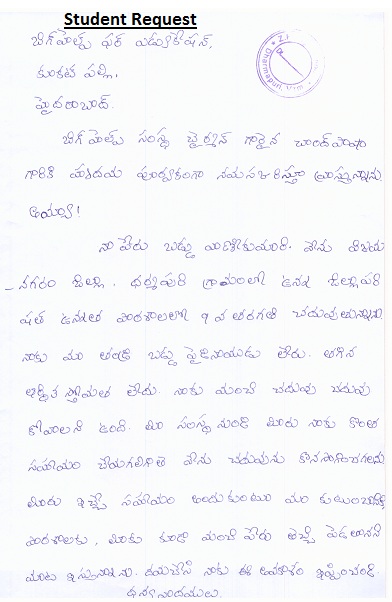 Student Request
బిగ్ హెల్ప్ ఫర్ ఎడ్యుకేషన్,
కుంకట పల్లి,
హైదరాబాద్.
బిగ్ హెల్ప్ సంస్థ ఛైర్మెన్ గారైన చాంద్ పాషా
గారికి హృదయ పూర్వకంగా నమస్కరిస్తూ వ్రాస్తున్నాను
అయ్యా!
నా పేరు బడ్డు నేను విజయ
నగరం జిల్లా, ధర్మపురి గ్రామంలో ఉన్న జిల్లాపరి
షత్ ఉన్నత పాఠశాలలో 9 వ తరగతి చదువుతున్నాను
నాకు మా తండ్రి బడ్డు పైడినాయుడు లేరు. తగిన
ఆర్థిక స్తోమత లేదు. నాకు మంచి చదువు చదువు
కోవాలని ఉంది. మీ సంస్థ నుండి మీరు నాకు కొంత
సహాయం చేయగలిగితే నేను చదువును కొనసాగించగలను
మీరు ఇచ్చే సహాయం అందుకుంటూ మా కుటుంబానికి
పాఠశాలకు, మీకు కూడా మంచి పేరు తెచ్చి పెడతానని
మాట ఇస్తున్నాను. దయచేసి నాకు ఈ అవకాశం ఇప్పించండి.
ధన్యవందములు.
Dharmapuri